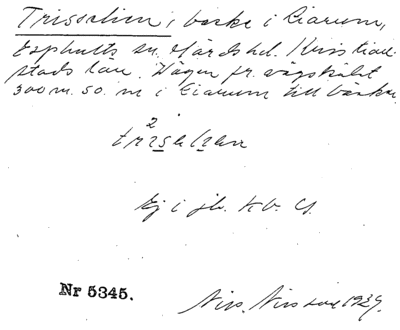 Trissalien, backe i Ciarum,
Esphults sn. Gärds hd. Kristian-
stads län. Vägen fr. vägskälet
300 m. so. m i Ciarum till backe
2
Ej i jb. Kb. G.
Nr 5345.
Nils Nilsson 1929.